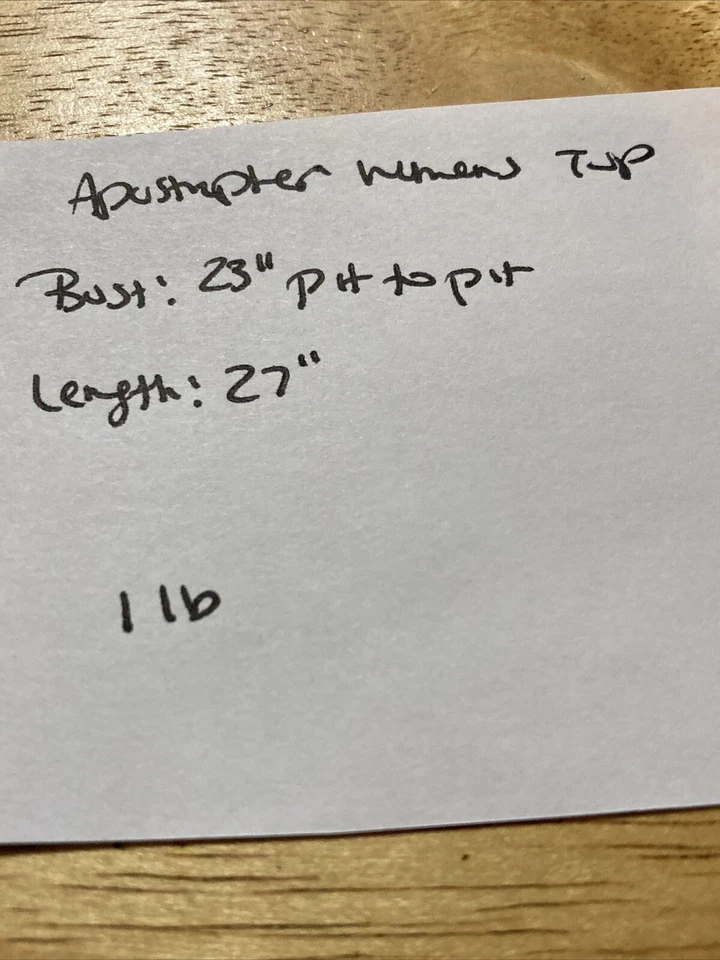 Apostrophe womens Top
Bust: 23" pit to pit
Length: 27"
1 lb